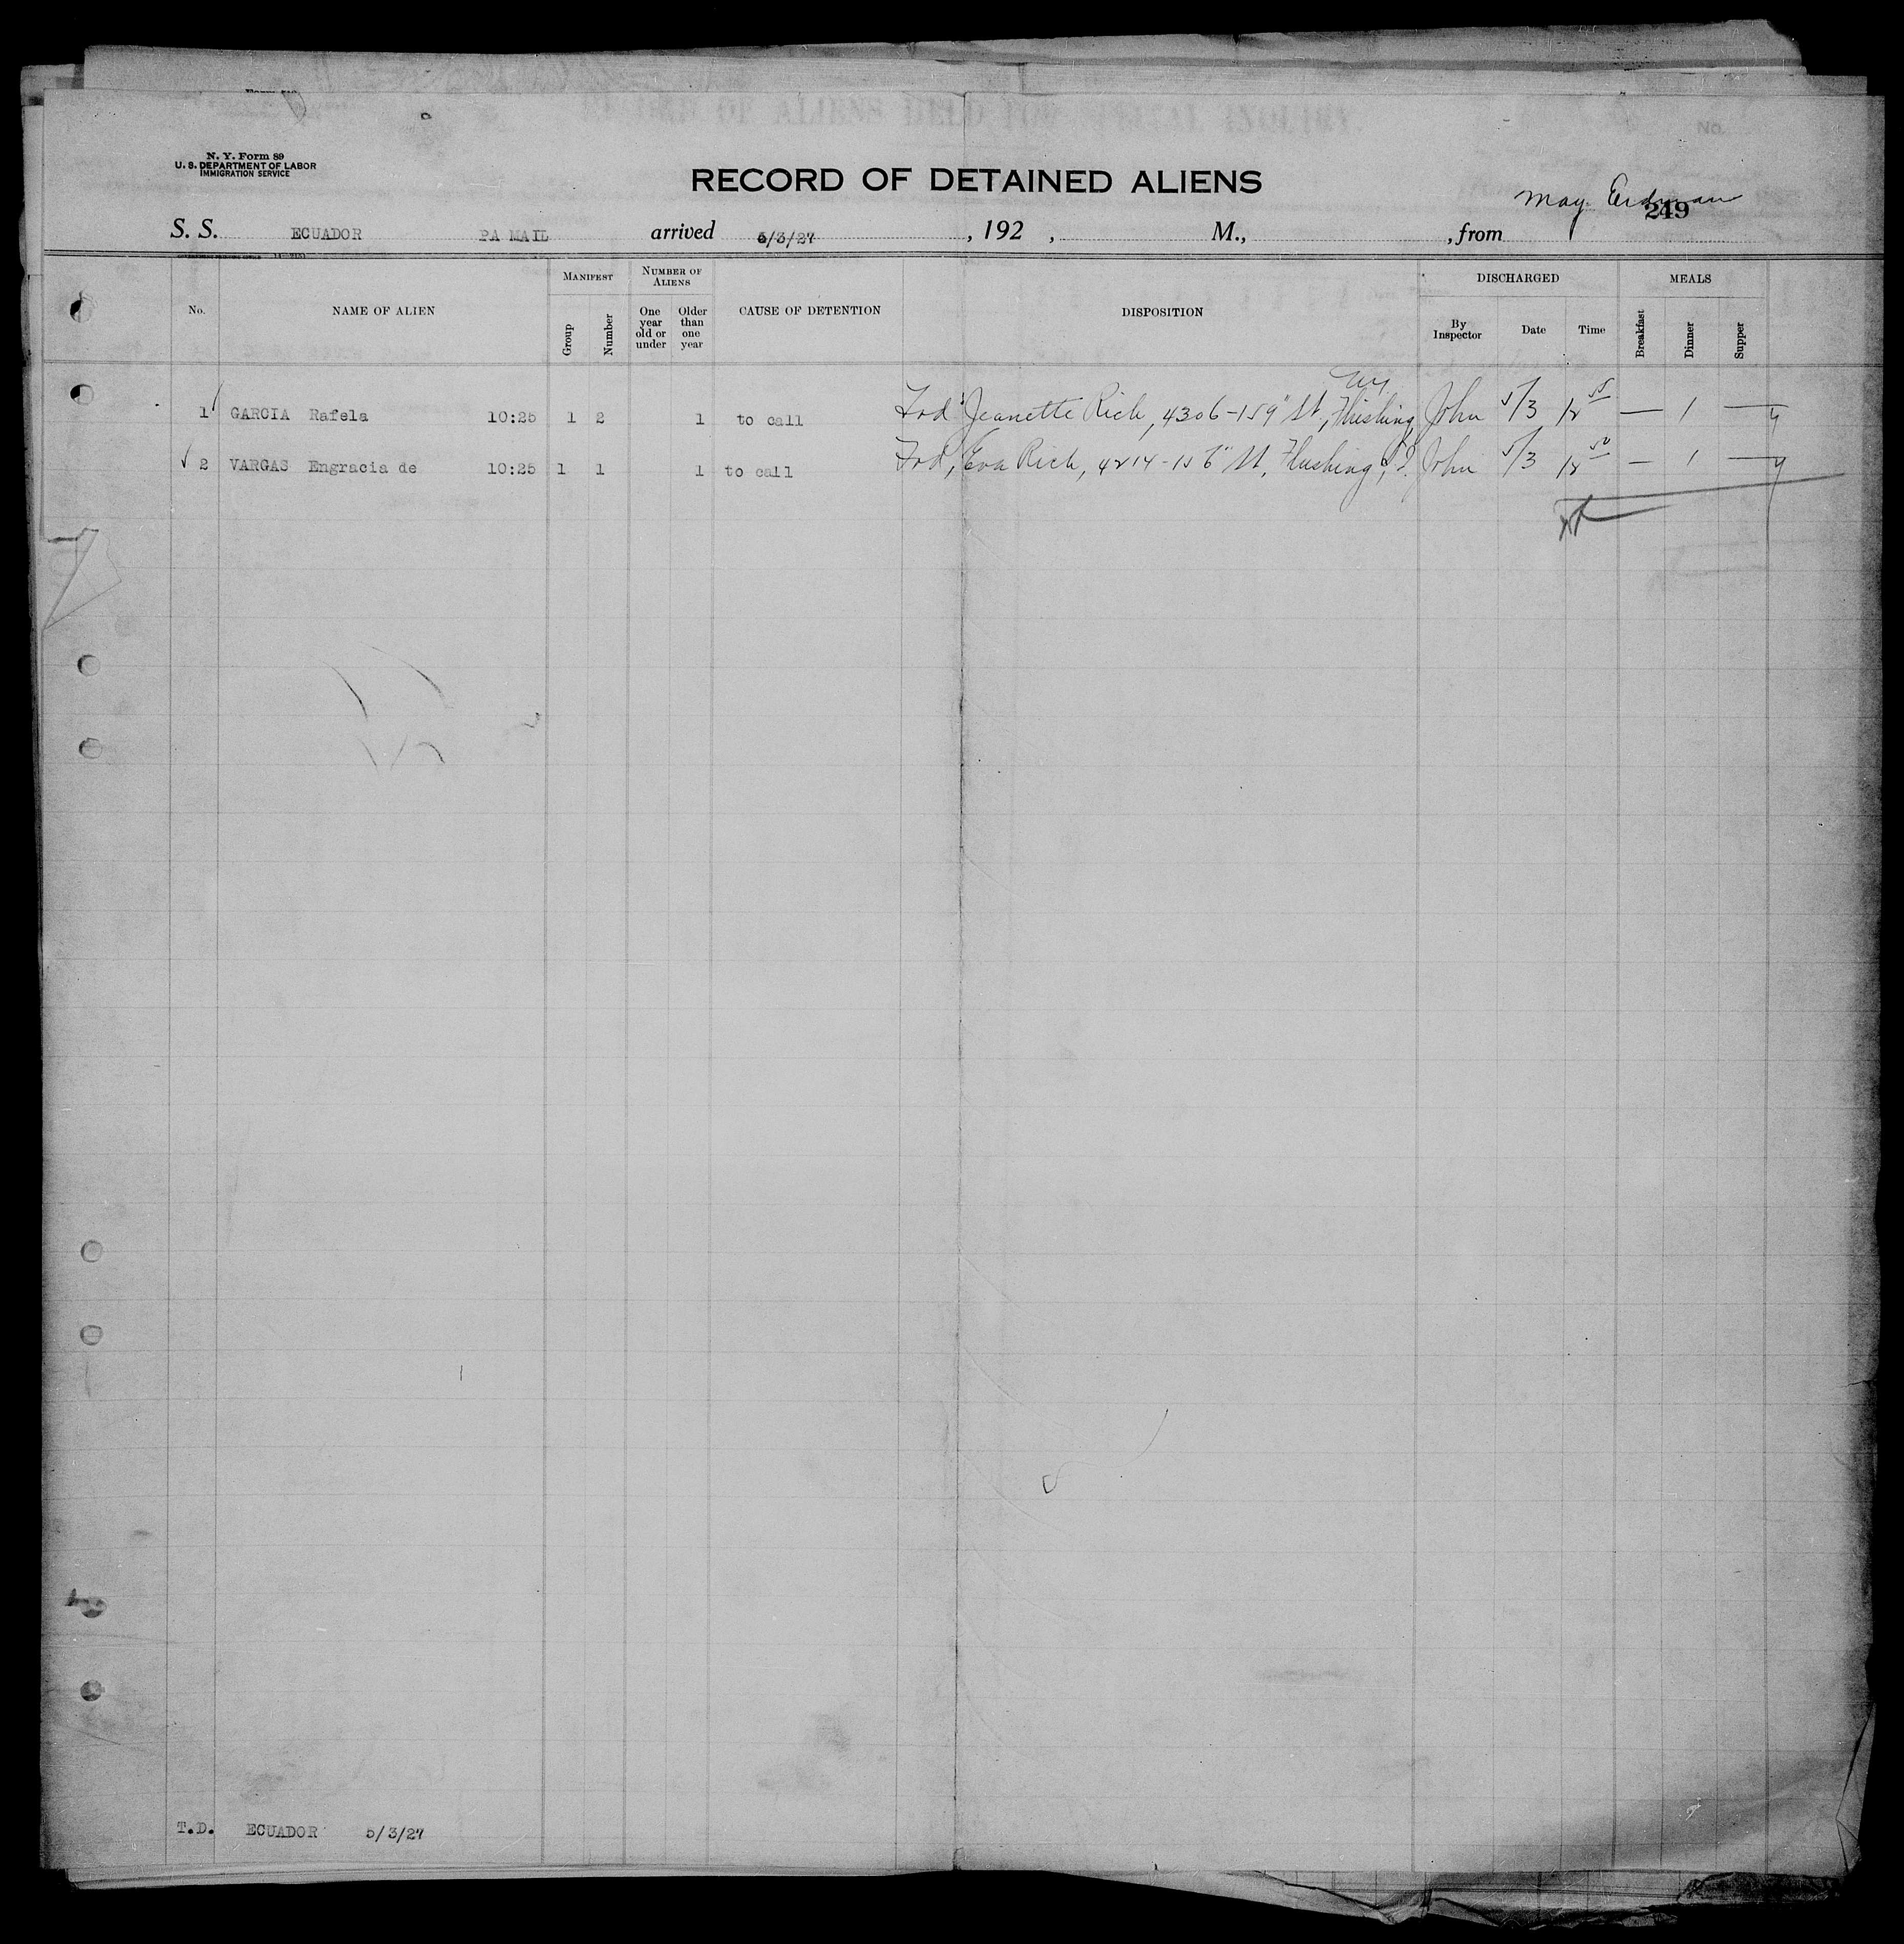 N. Y. Form 89
U. S. DEPARTMENT OF LABOR
IMMIGRATION SERVICE
No.
RECORD OF DETAINED ALIENS
May Erdman
249
S. S. ECUADOR PA MAIL arrived 5/3/27 , 192 , M., , from
No. NAME OF ALIEN MANIFEST Group Number NUMBER OF ALIENS One year old or under Older than one year CAUSE OF DETENTION DISPOSITION DISCHARGED By Inspector Date Time MEALS Breakfast Dinner Supper
1 GARCIA Rafela 10:25 1 2 1 to call Frd: Jeanette Rich, 4306-159" St., Flushing, NY John 5/3 12 55 — 1 —
2 VARGAS Engracia de 10:25 1 1 1 to call Frd, Eva Rich, 4214-156" St, Flushing, L.I. John 5/3 12 50 — 1 —
T.D. ECUADOR 5/3/27